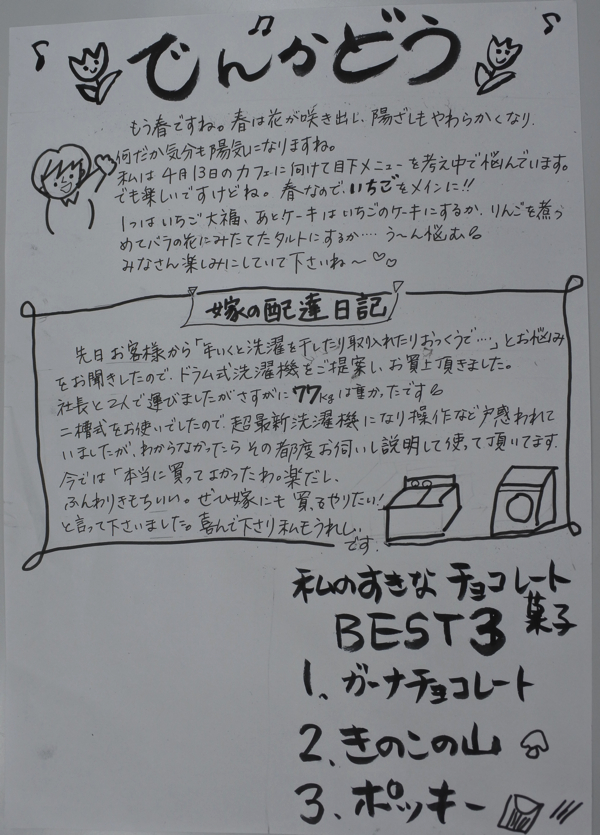 でんかどう
もう春ですね。春は花が咲き出し、陽ざしもやわらかくなり、
何だか気分も陽気になりますね。
私は4月13日のカフェに向けて目下メニューを考え中で悩んでいます。
でも楽しいですけどね。春なので、いちごをメインに!!
1つはいちご大福、あとケーキはいちごのケーキにするか、りんごを煮つ
めてバラの花にみたてたタルトにするか……う〜ん悩むる
みなさん楽しみにしていて下さいね〜♡♡
嫁の配達日記
先日お客様から「年いくと洗濯を干したり取り入れたりおっくうで…」とお悩み
をお聞きしたので、ドラム式洗濯機をご提案し、お買上頂きました。
社長と2人で運びましたがさすがに77kgは重かったでする
二槽式をお使いでしたので、超最新洗濯機になり操作など戸惑われて
いましたが、わからなかったらその都度お伺いし説明して使って頂いてます。
今では「本当に買ってよかったわ。楽だし、
ふんわりきもちいい。ぜひ嫁にも買ってやりたい!
と言って下さいました。喜んで下さり私もうれしい
です。
私のすきなチョコレート
菓子
BEST3
1、ガーナチョコレート
2、きのこの山
3、ポッキー